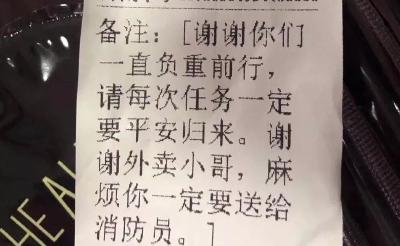 备注：[谢谢你们
一直负重前行，
请每次任务一定
要平安归来。谢
谢外卖小哥，麻
烦你一定要送给
消防员。]
HEAL